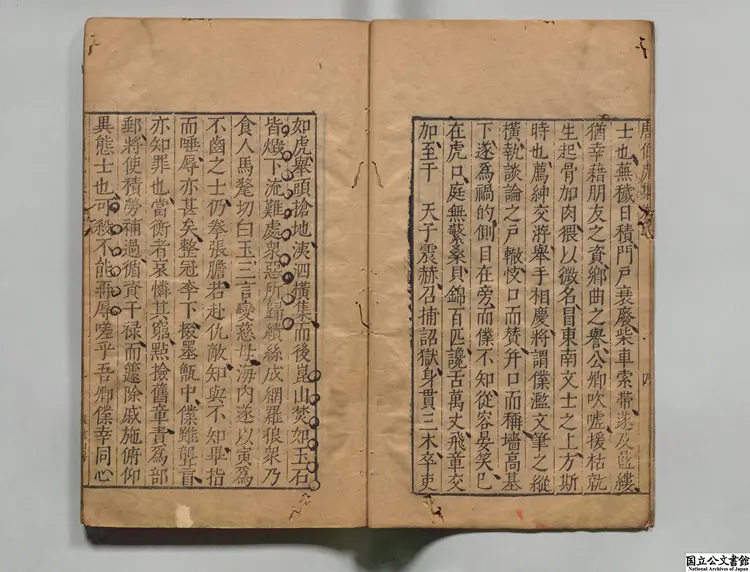 士也無穢日積門戶衰廢柴車索帶遂及藍縷
猶幸藉朋友之資鄉曲之譽公卿吹噓援枯就
生起骨加肉猥以微名冒東南文士之上方斯
時也薦紳交游舉手相慶將謂僕濫文筆之縱
橫執談論之戶轍岐口而贊并口而稱墻高基
下遂爲禍的側目在旁而僕不知從容晏笑已
在虎口庭無蘩桑貝錦百匹讒舌萬丈飛章交
加至于 天子震赫召捕詔獄身貫三木卒吏
四
如虎舉頭搶地洟泗橫集而後崑山焚如玉石
皆燬下流難處衆惡所歸繢絲成網羅狼衆乃
食人馬氂切白玉三言變慈母海內遂以寅爲
不齒之士仍拳張膽若赴仇敵知與不知畢指
而唾辱亦甚矣整冠李下掇墨甑中僕雖聾盲
亦知罪也當衡者哀憐其窮點撿舊章責爲部
郵將使積勞補過循資干禄而籧除戚施俯仰
異態士也可殺不能再辱嗟乎吾卿僕幸同心
国立公文書館
National Archives of Japan